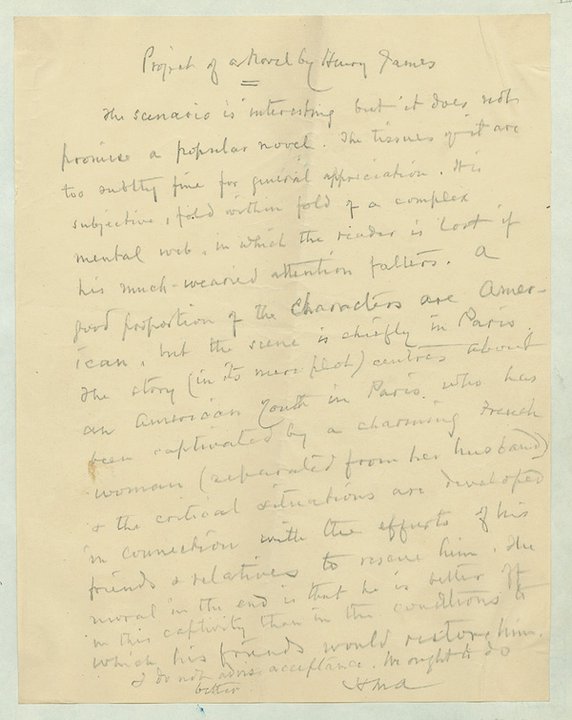 Project of a Novel by Henry James
The scenario is interesting but it does not
promise a popular novel. The tissues of it are
too subtly fine for general appreciation. It is
subjective, fold within fold of a complex
mental web, in which the reader is lost if
his much-wearied attention falters. A
good proportion of the characters are Amer-
ican, but the scene is chiefly in Paris.
The story (in its mere plot) centres about
an American youth in Paris who has
been captivated by a charming French
woman (separated from her husband)
& the critical situations are developed
in connection with the efforts of his
friends & relatives to rescue him. The
moral in the end is that he is better off
in this captivity than in the conditions to
which his friends would restore him.
I do not advise acceptance. We ought to do
better.
HMA